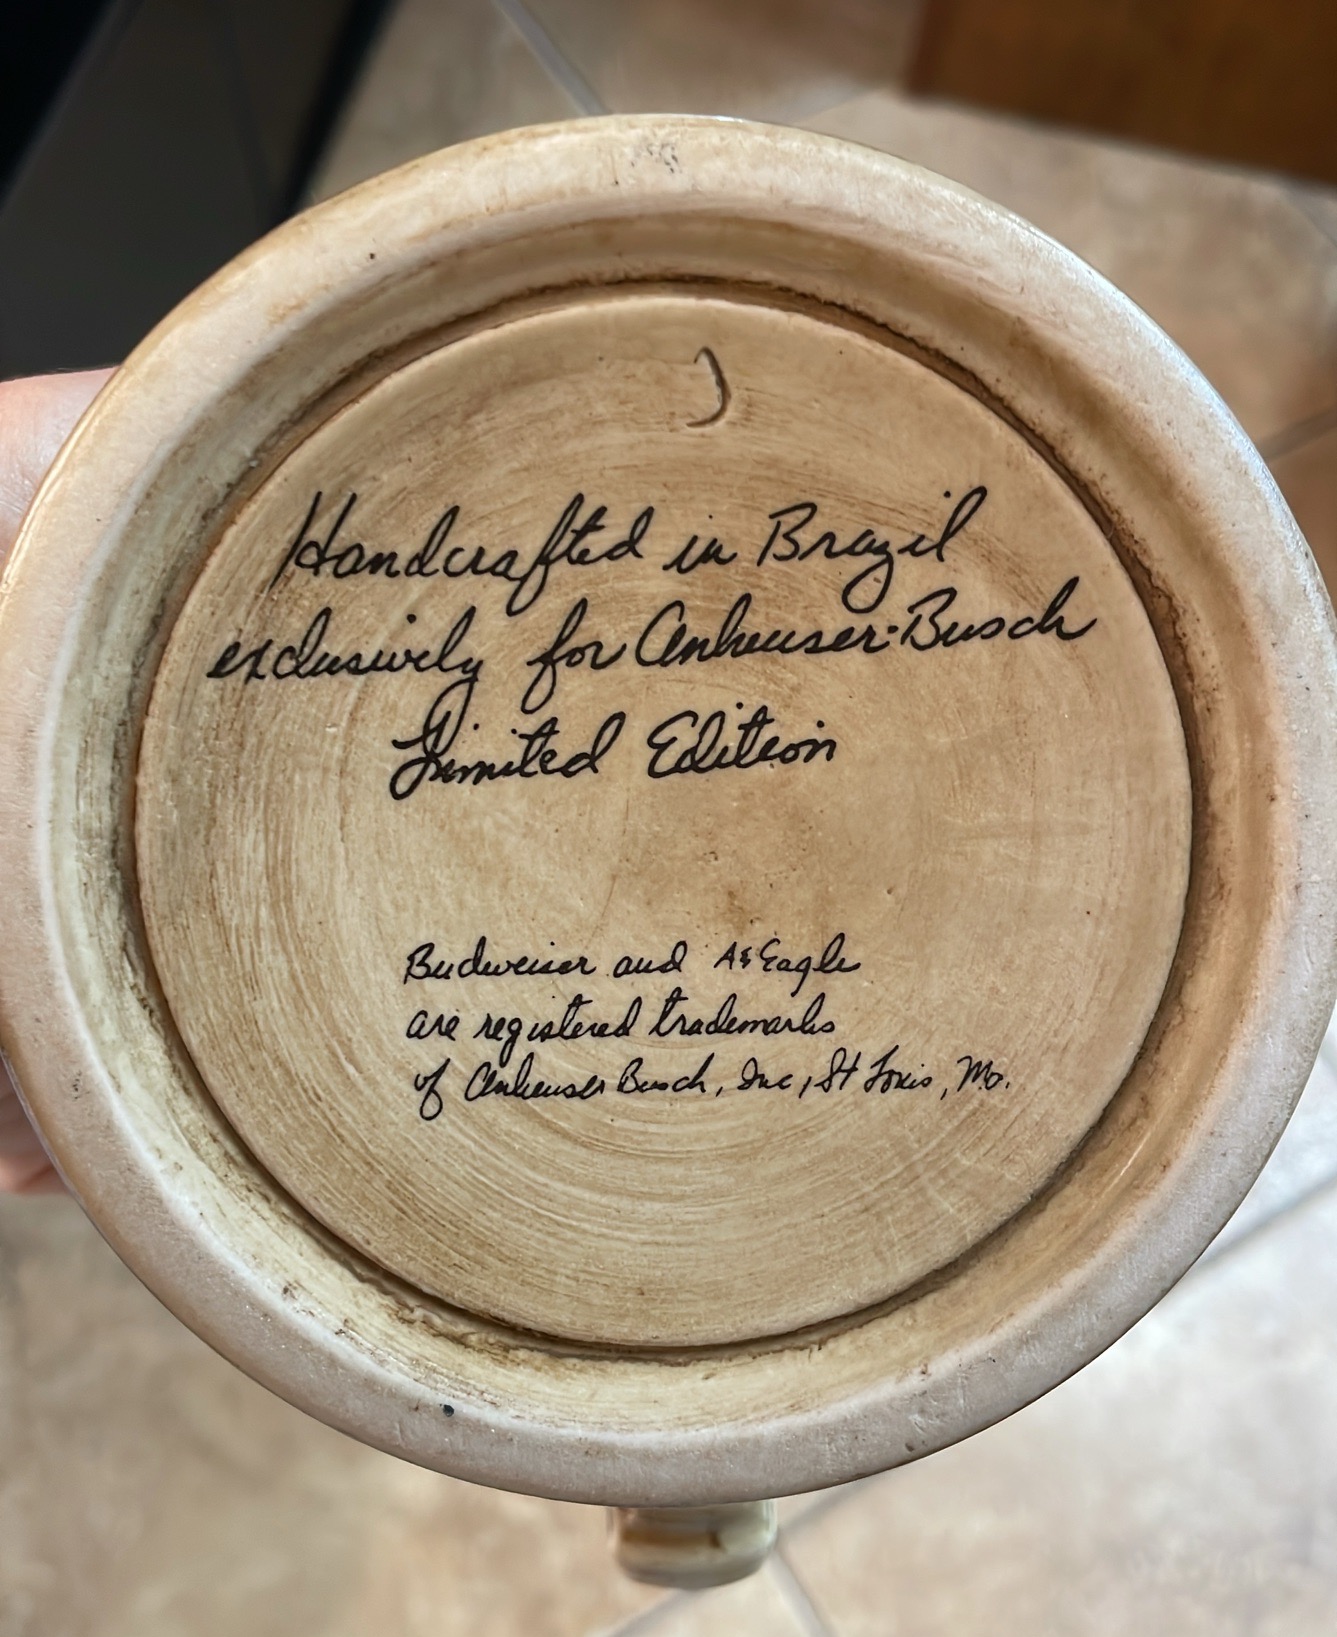 Handcrafted in Brazil
exclusively for Anheuser-Busch
Limited Edition
Budweiser and A&Eagle
are registered trademarks
of Anheuser Busch, Inc, St Louis, Mo.